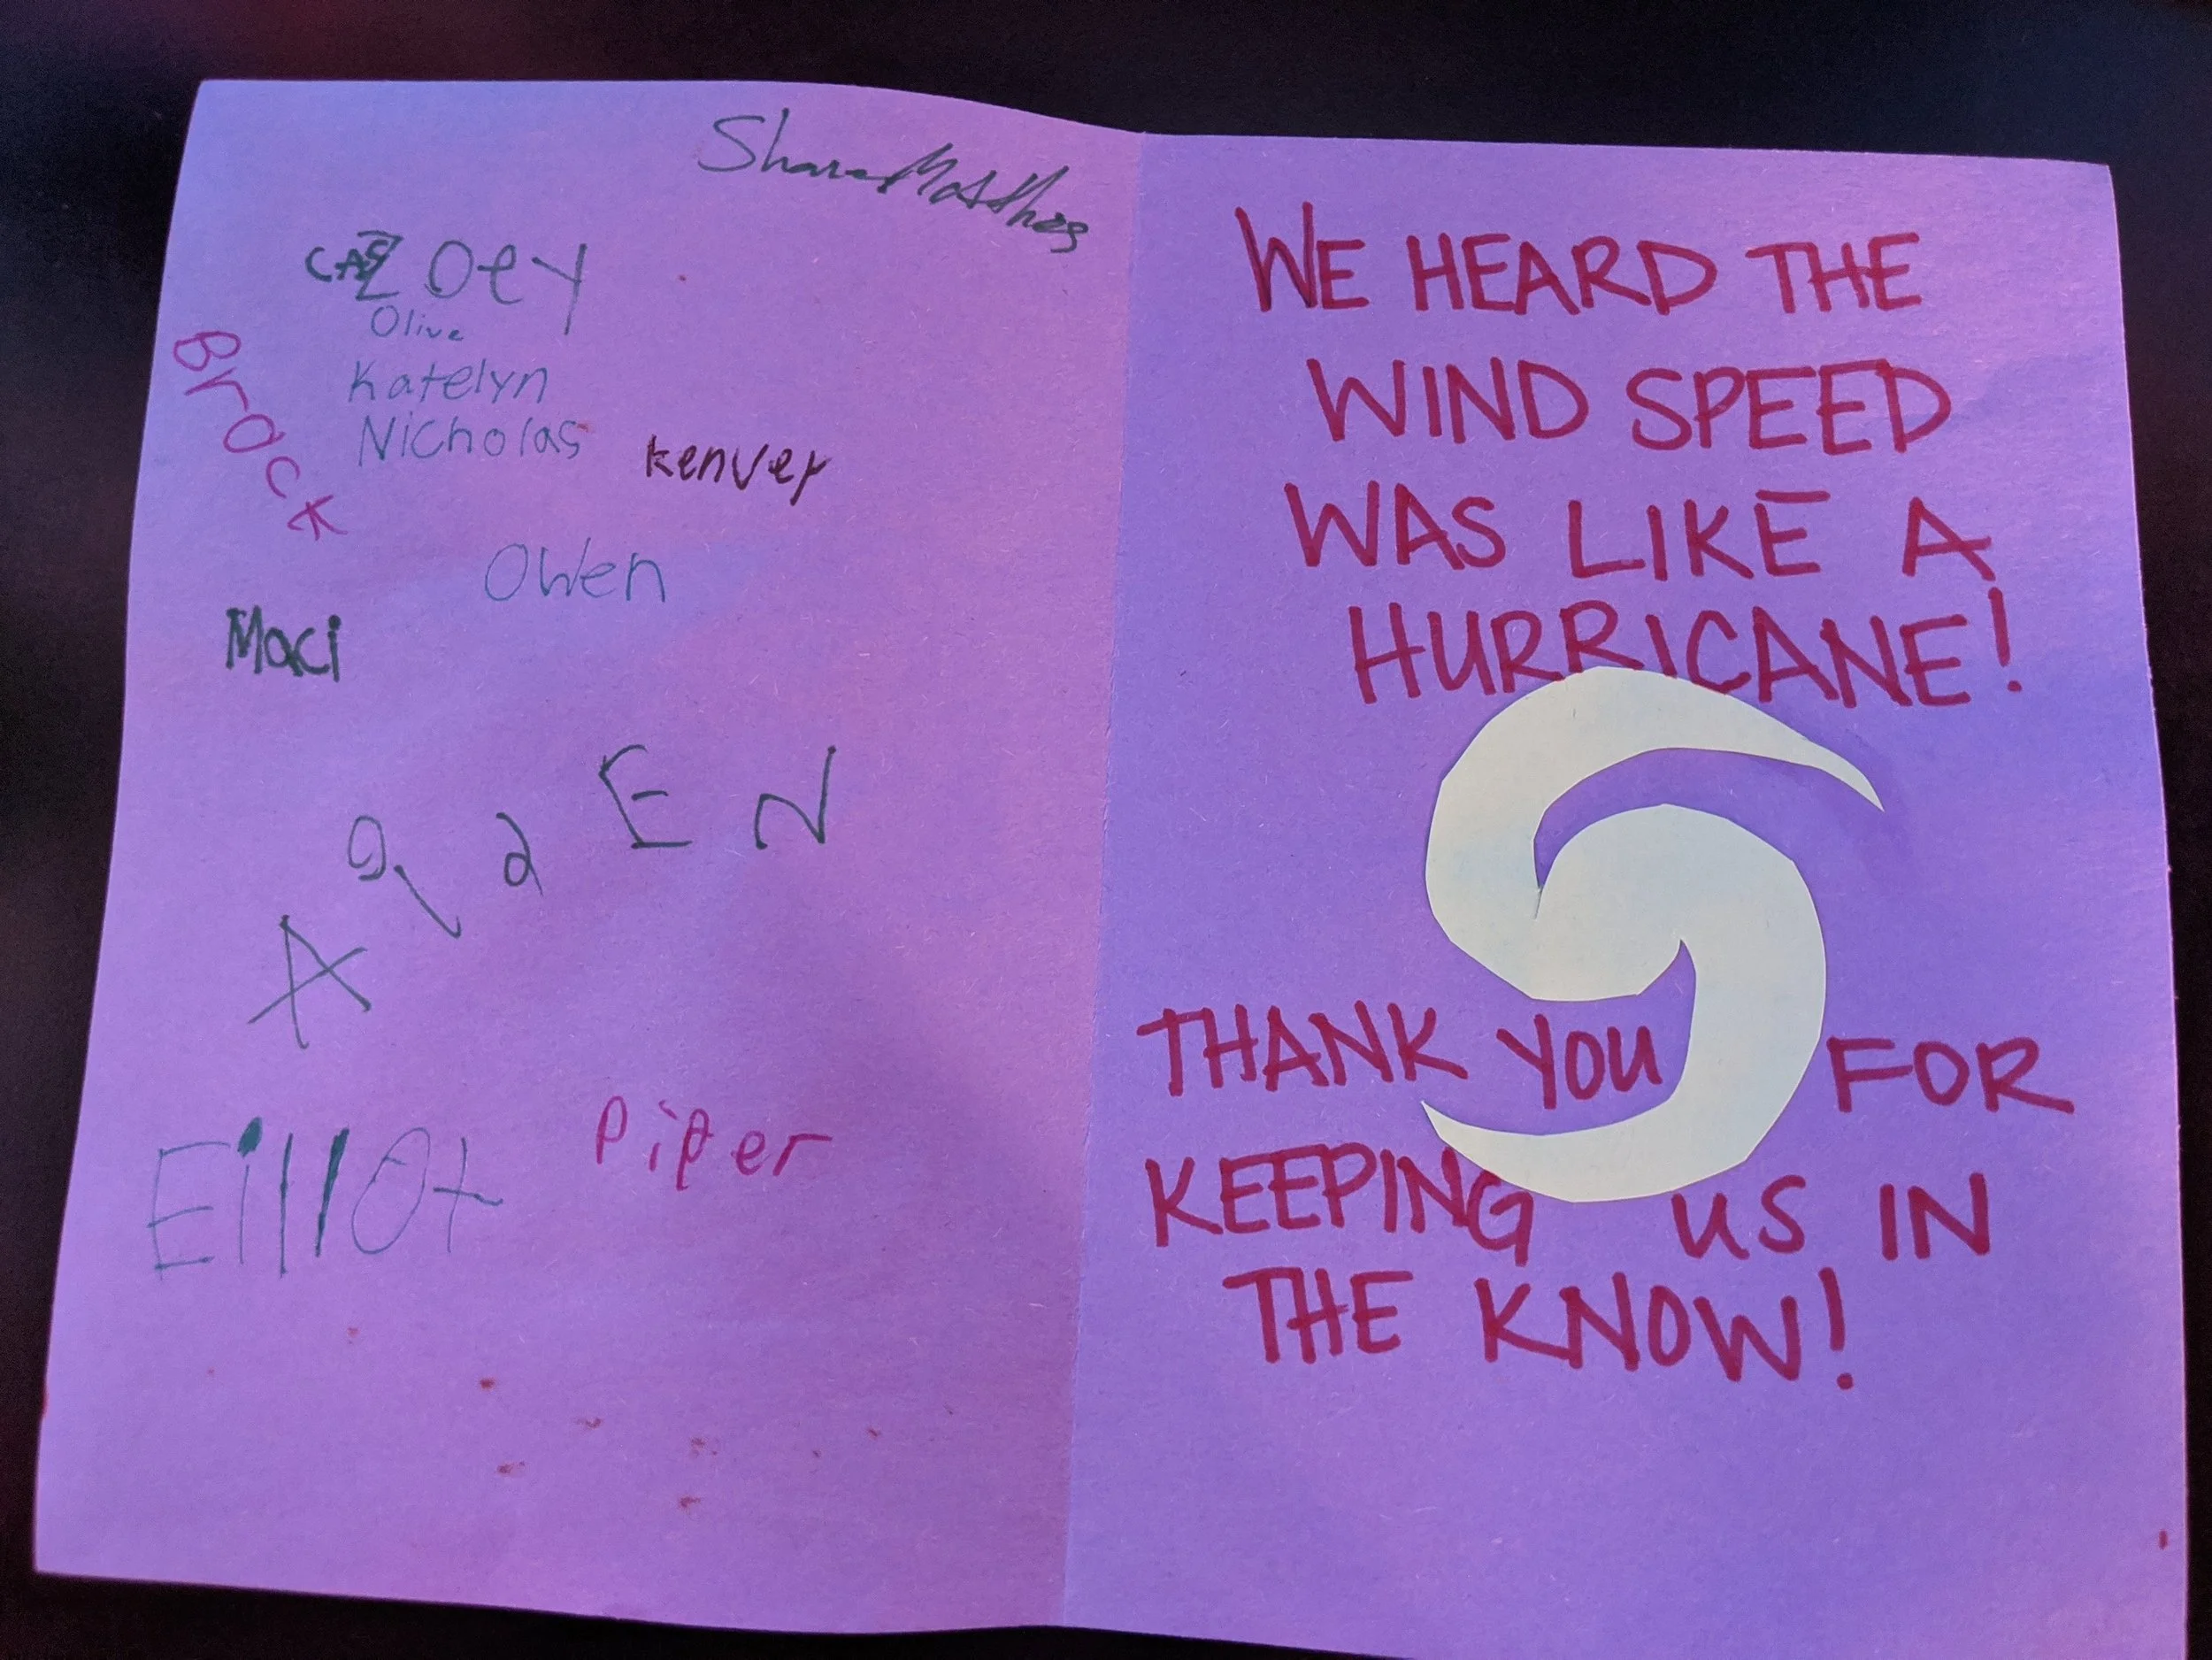 Zoey
Olive
Katelyn
Nicholas
Brock
Kenver
Owen
Maci
AidEN
Eillot
Piper
WE HEARD THE
WIND SPEED
WAS LIKE A
HURRICANE!
THANK YOU FOR
KEEPING US IN
THE KNOW!